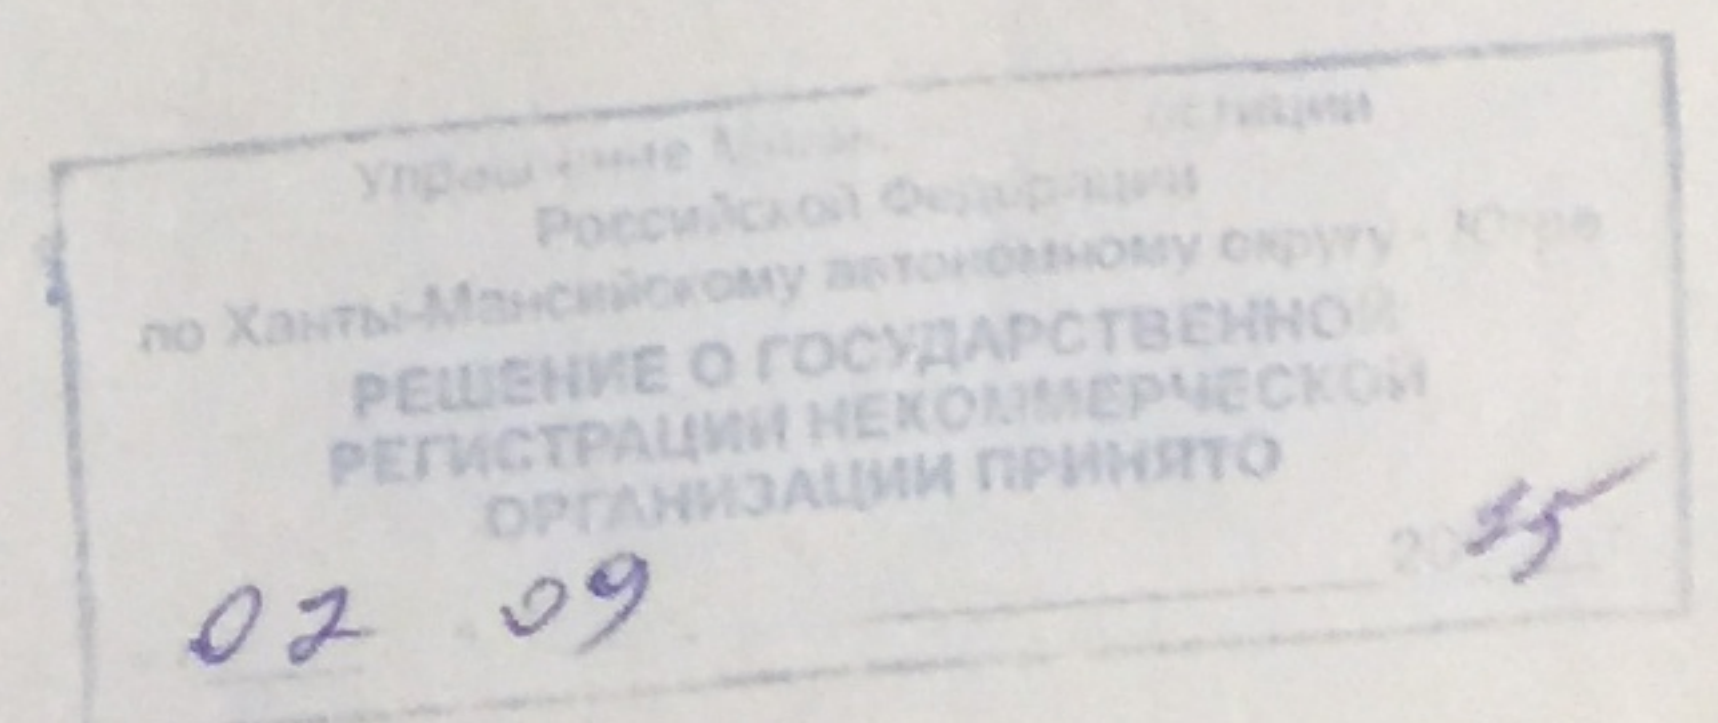 Управление
Российской Федерации
по Ханты-Мансийскому автономному округу - Югре
РЕШЕНИЕ О ГОСУДАРСТВЕННОЙ
РЕГИСТРАЦИИ НЕКОММЕРЧЕСКОЙ
ОРГАНИЗАЦИИ ПРИНЯТО
02 09 2015